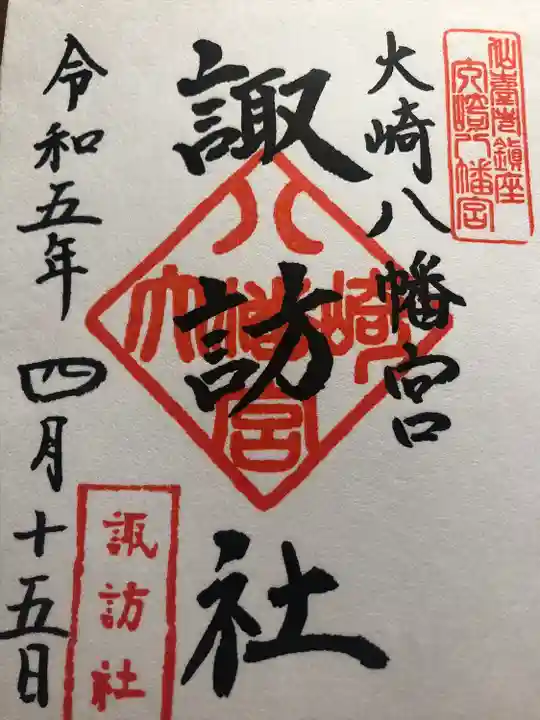 仙臺巷鎮座
大崎八幡宮
大崎八幡宮
諏訪社
大崎八幡宮
諏訪社
令和五年四月十五日